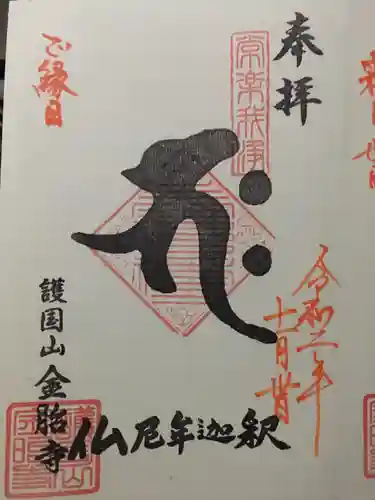 奉拝
常楽我浄
令和二年
十一月廿
ご縁日
釈迦牟尼仏
護国山金胎寺